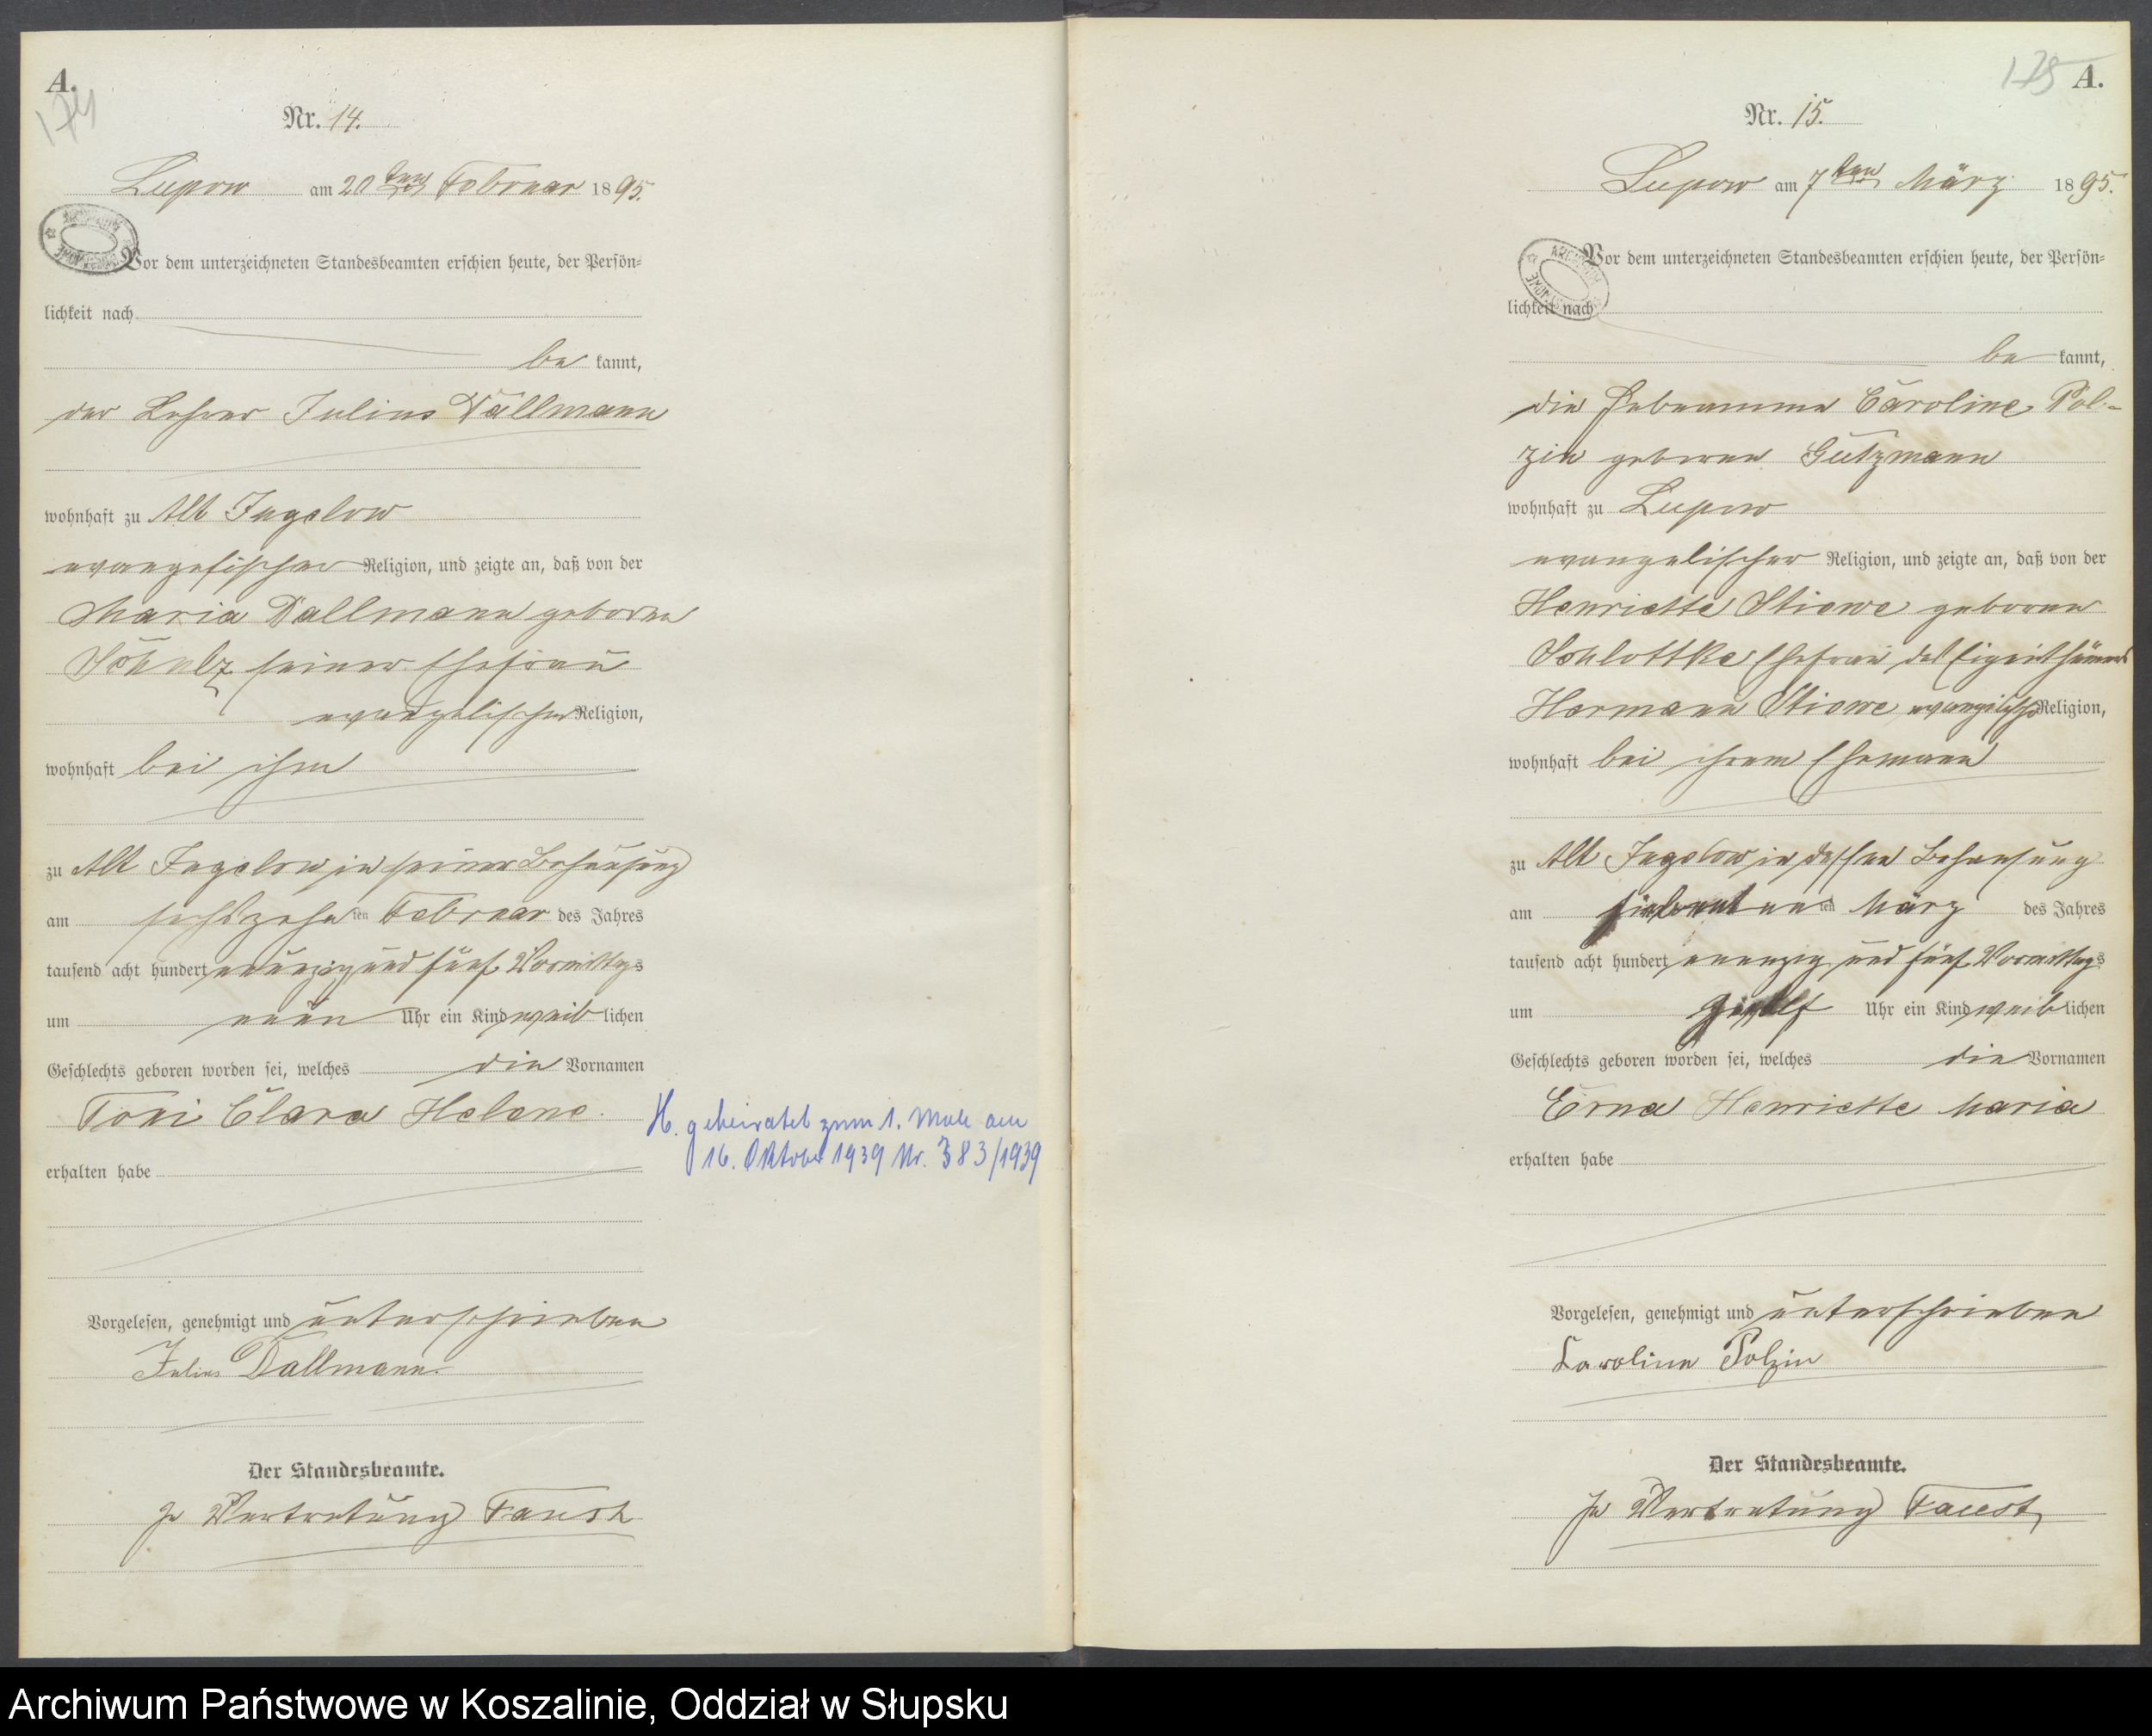 A.
174
Nr. 14.
Lupow am 20ten Februar 1895.
Vor dem unterzeichneten Standesbeamten erschien heute, der Persön-
lichkeit nach
be kannt,
der Lehrer Julius Dallmann
wohnhaft zu Alt Jugelow
evangelischer Religion, und zeigte an, daß von der
Maria Dallmann geboren
Schulz seiner Ehefrau
evangelischer Religion,
wohnhaft bei ihm
zu Alt Jugelow in seiner Behausung
am sechszehn ten Februar des Jahres
tausend acht hundert neunzig und fünf Vormittags
um neun Uhr ein Kind weiblichen
Geschlechts geboren worden sei, welches die Vornamen
Toni Clara Helene.
H. geheiratet zum 1. Male am
16. Oktober 1939 Nr. 383/1939
erhalten habe
Vorgelesen, genehmigt und unterschrieben
Julius Dallmann.
Der Standesbeamte.
In Vertretung Faust
175 A.
Nr. 15.
Lupow am 7ten März 1895.
Vor dem unterzeichneten Standesbeamten erschien heute, der Persön-
lichkeit nach
be kannt,
die Hebeamme Caroline Pol-
zin geboren Gutzmann
wohnhaft zu Lupow
evangelischer Religion, und zeigte an, daß von der
Henriette Stiewe geboren
Schlottke Ehefrau des Eigenthümers
Hermann Stiewe evangelischer Religion,
wohnhaft bei ihrem Ehemann
zu Alt Jugelow in dessen Behausung
am siebenten ten März des Jahres
tausend acht hundert neunzig und fünf Vormittags
um Uhr ein Kind weiblichen
Geschlechts geboren worden sei, welches die Vornamen
Erna Henriette Maria
erhalten habe
Vorgelesen, genehmigt und unterschrieben
Karoline Polzin
Der Standesbeamte.
In Vertretung Faust
Archiwum Państwowe w Koszalinie, Oddział w Słupsku